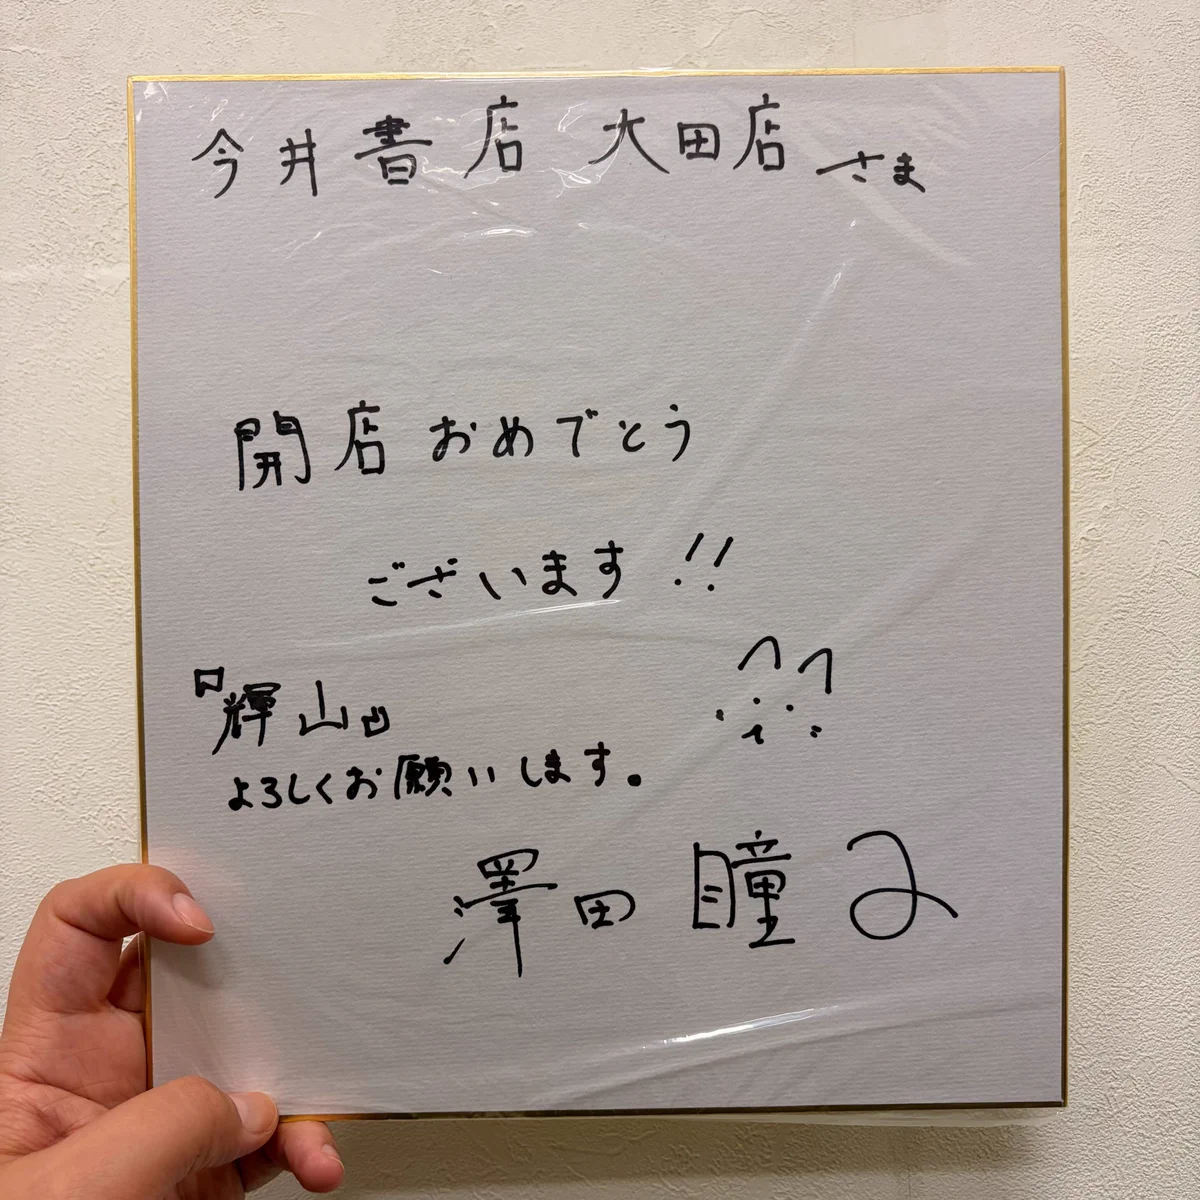 今井書店 大田店 さま
開店おめでとう
ございます!!
『輝山』
よろしくお願いします。
澤田瞳子